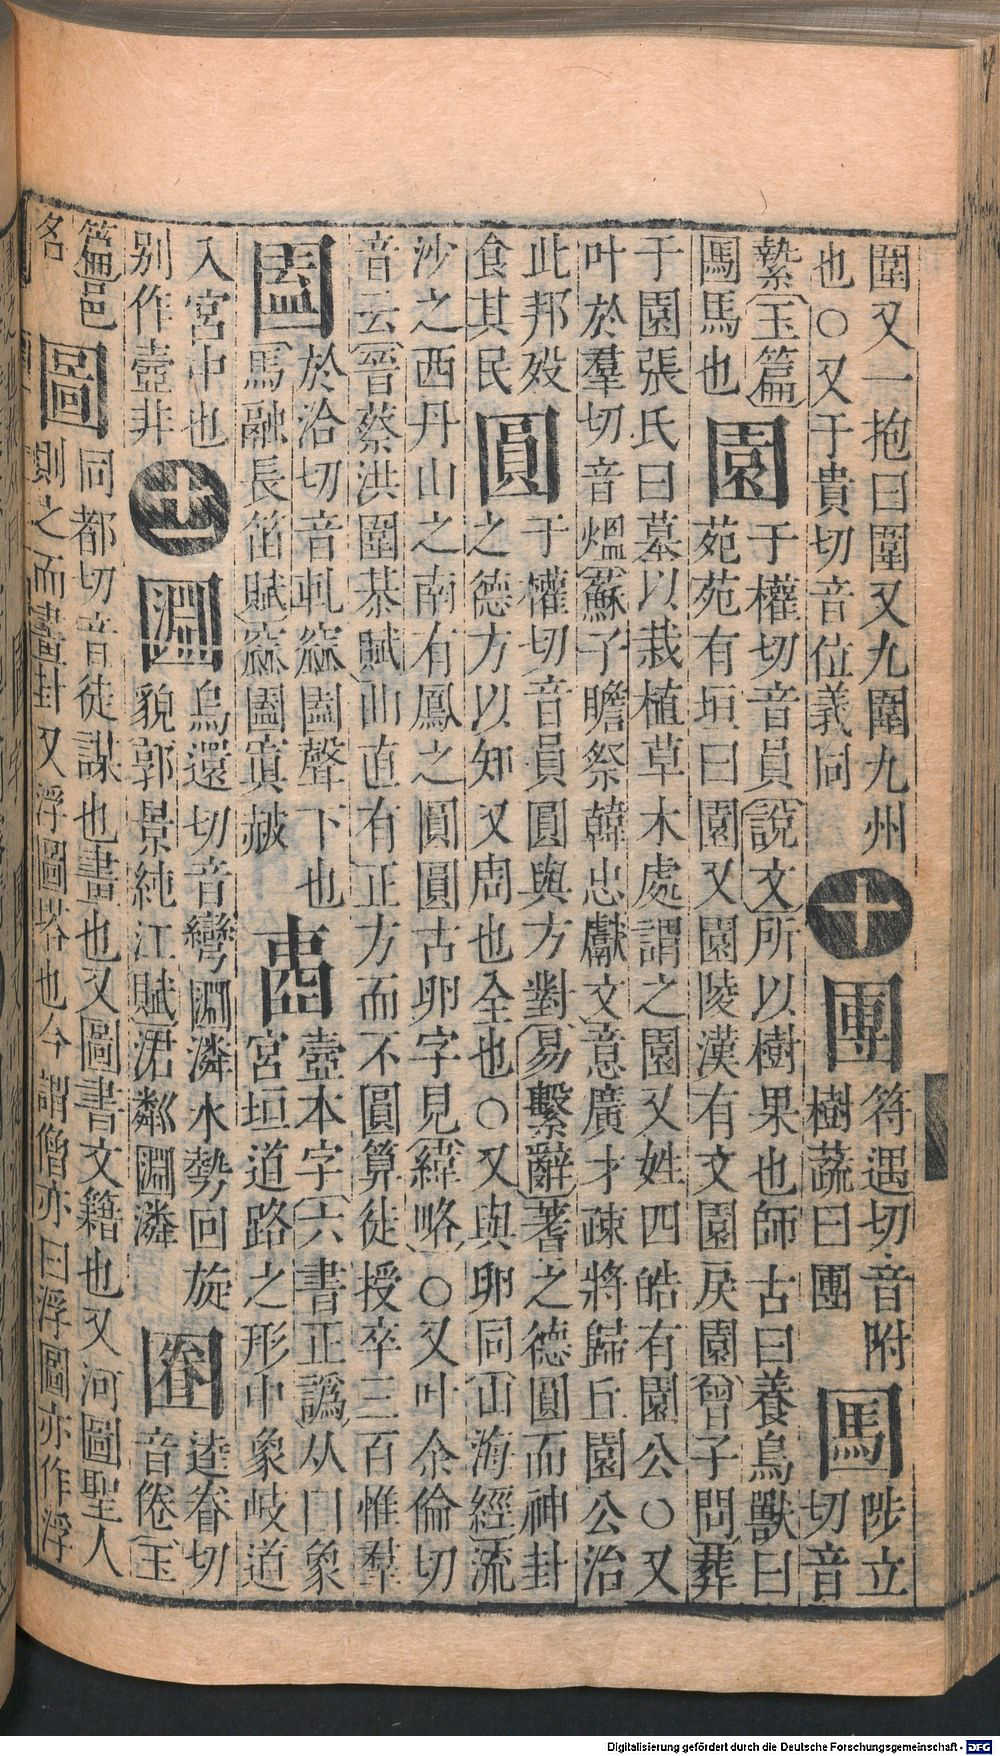 圍又一抱曰圍又九圍九州
也○又于貴切音位義同
十
圑
符遇切音附
樹蔬曰圑
陟立切音
縶〔玉篇〕
馬也
園
于權切音員〔說文〕所以樹果也師古曰養鳥獸曰
苑苑有垣曰園又園陵漢有文園戾園〔曾子問〕葬
于園張氏曰墓以栽植草木處謂之園又姓四皓有園公○又
叶於羣切音熅〔蘇子瞻祭韓忠獻文〕意廣才疎將歸丘園公治
此邦歿
食其民
圓
于權切音員圓與方對〔易繫辭〕蓍之德圓而神卦
之德方以知又周也全也○又與卵同〔山海經〕流
沙之西丹山之南有鳳之圓圓古卵字見〔緯略〕○又叶余倫切
音云〔晉蔡洪圍棊賦〕曲直有正方而不圓算徒授卒三百惟羣
圔
於洽切音軋窊圔聲下也
〔馬融長笛賦〕窊圔窴赧
壼本字〔六書正譌〕从囗象
宮垣道路之形中象岐道
入宮中也
別作壼非
十一
㘤
烏還切音彎㘤潾水勢回旋
貌郭景純江賦涒鄰㘤潾
逵眷切
音倦〔玉
篇〕邑
名
圖
同都切音徒謀也畫也又圖書文籍也又河圖聖人
則之而畫卦又浮圖塔也今謂僧亦曰浮圖亦作浮
Digitalisierung gefördert durch die Deutsche Forschungsgemeinschaft - DFG